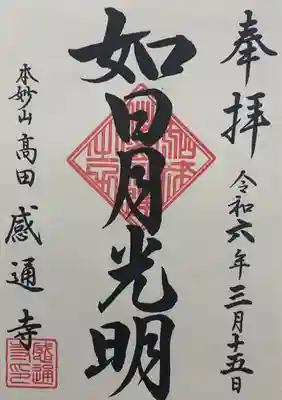 奉拝
令和六年三月十五日
如日月光明
本妙山 高田 感通寺
感通寺印